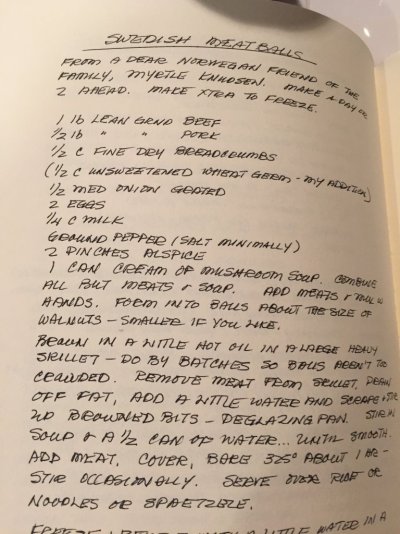 SWEDISH MEATBALLS
FROM A DEAR NORWEGIAN FRIEND OF THE
FAMILY, MYRTLE KNUDSEN. MAKE A DAY OR
2 AHEAD. MAKE XTRA TO FREEZE.
1 lb LEAN GRND BEEF
1/2 lb " " PORK
1/2 C FINE DRY BREADCRUMBS
(1/2 C UNSWEETENED WHEAT GERM - MY ADDITION)
1/2 MED ONION GRATED
2 EGGS
1/4 C MILK
GROUND PEPPER (SALT MINIMALLY)
2 PINCHES ALSPICE
1 CAN CREAM OF MUSHROOM SOUP. COMBINE
ALL BUT MEATS & SOUP. ADD MEATS & MIX W
HANDS. FORM INTO BALLS ABOUT THE SIZE OF
WALNUTS - SMALLER IF YOU LIKE.
BROWN IN A LITTLE HOT OIL IN A LARGE HEAVY
SKILLET - DO BY BATCHES SO BALLS AREN'T TOO
CROWDED. REMOVE MEAT FROM SKILLET, DRAIN
OFF FAT, ADD A LITTLE WATER AND SCRAPE & STIR
UP BROWNED BITS - DEGLAZING PAN. STIR IN
SOUP & A 1/2 CAN OF WATER... UNTIL SMOOTH.
ADD MEAT, COVER, BAKE 325° ABOUT 1 HR -
STIR OCCASIONALLY. SERVE OVER RICE OR
NOODLES OR SPAETZELE.
LITTLE WATER IN A